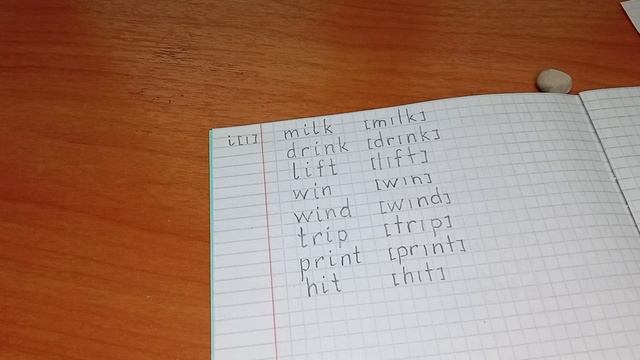 i [ı] milk [mılk]
drink [drınk]
lift [lıft]
win [wın]
wind [wınd]
trip [trıp]
print [prınt]
hit [hıt]